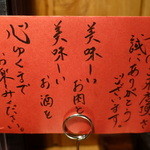 誠にありがとう
ございます。
美味しーい
お肉と
美味しーい
お酒を
心ゆくまで
お楽しみください。